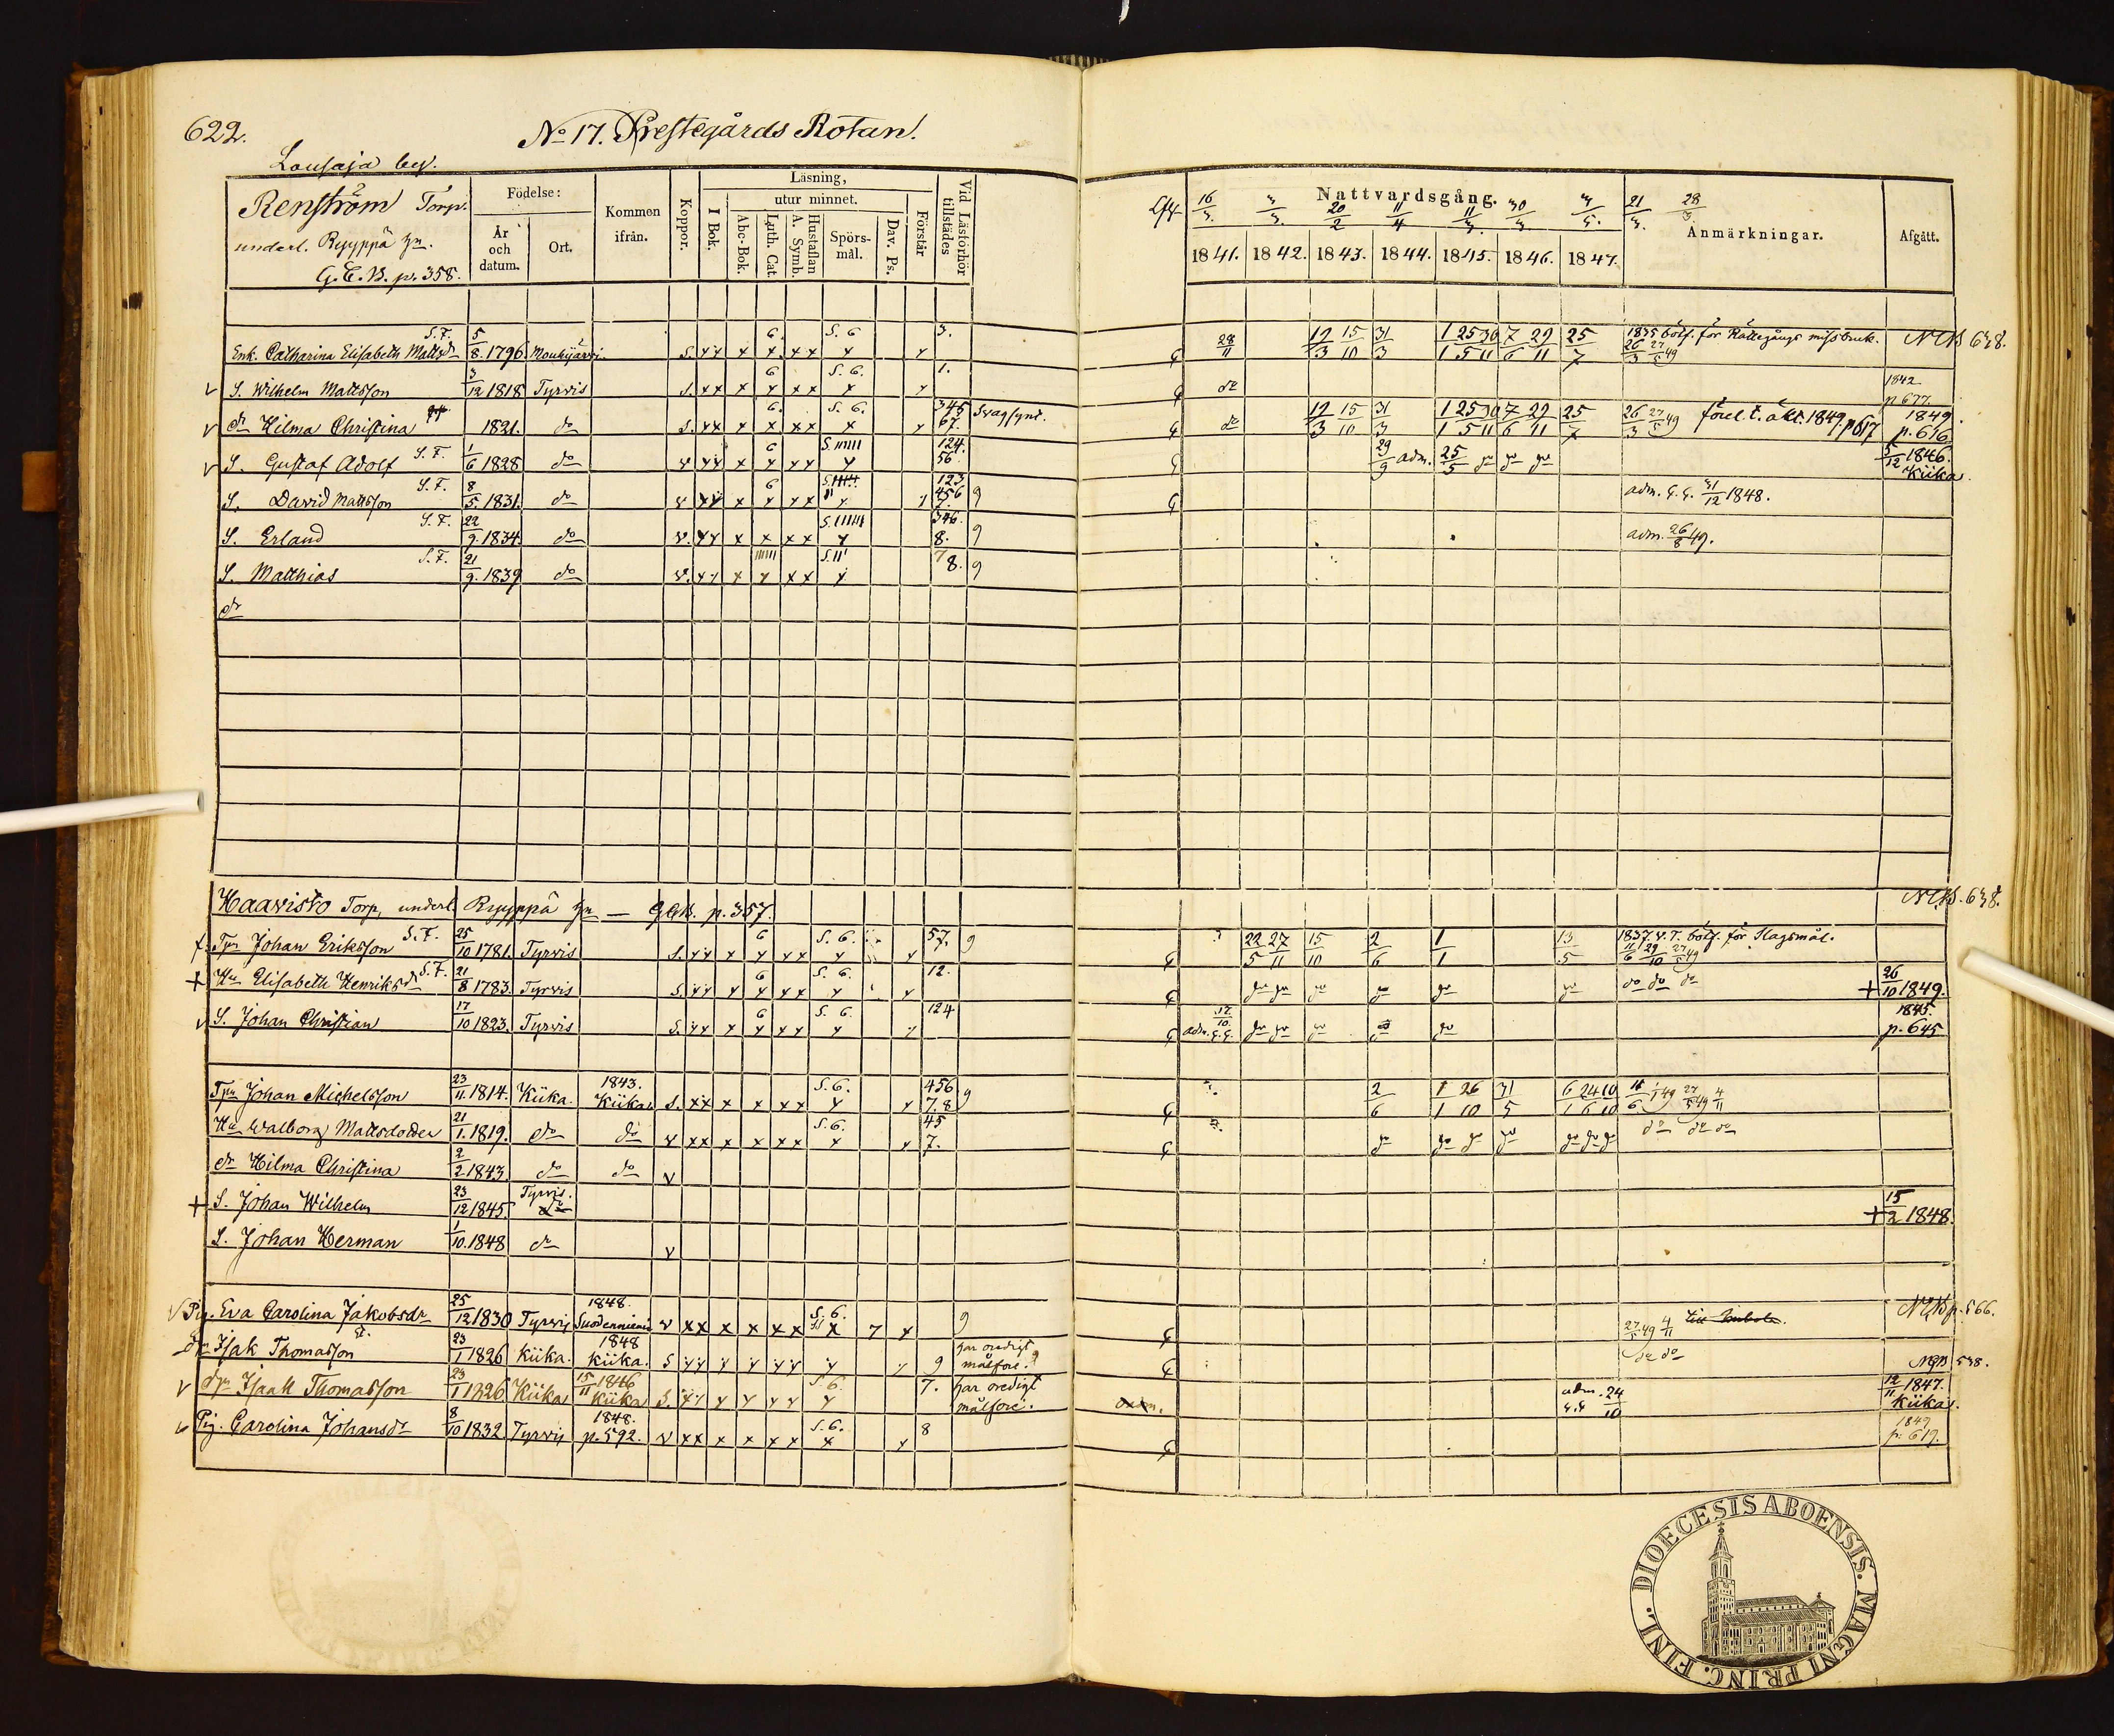 622. No 17. Prestegårds Rotan.
Lousaja by.
Renström Torp.
underl. Ryyppä hn.
G.C.B. p. 358.
Födelse: År och datum. Ort. Kommen ifrån. Koppor. Läsning, I Bok. utur minnet. Abc-Bok. Luth. Cat. A. Symb. Hustaflan Spörs-mål. Dav. Ps. Förstår Vid Läsförhör tillstädes
Nattvardsgång. Anmärkningar. Afgått.
16/3. 20/2 11/4 11/3. 30/3. 21/3. 28/3.
1841. 1842. 1843. 1844. 1845. 1846. 1847.
Enk. Catharina Elisabeth Mattsdr S.F. 5/8. 1796 Mouhijärvi S. 6. S. 6 3. 28/11 12/3 15/10 31/3 1/1 25/5 30/11 7/6 29/11 25/7 1835 bötf. för Rättegångs missbruk. 26/3 27/5 49 NCB 638.
S. Wilhelm Mattsson 3/12 1818 Tyrvis S. 6 S. 6. 1. do 1842 p 677.
dr Hilma Christina 1821. do S. 6. S. 6. 345 67. Svagsynt. do 12/3 15/10 31/3 1/1 25/5 30/11 7/6 29/11 25/7 26/3 27/5 49 förel. t. äkt. 1849. p 617 1849. p. 616
S. Gustaf Adolf S.F. 1/6 1828 do v 6 S. 124. 56 29/9 adm. 25/5 do do do 5/12 1846. Kiika.
S. David Mattsson S.F. 8/5. 1831. do v 6 S. 123 456 7. 9 adm. 31/12 1848.
S. Erland S.F. 22/9. 1834. do v. S. 346. 8. 9 adm. 26/8 49.
S. Matthias S.F. 21/9. 1839 do v. S. 78. 9
dr
Haavisto Torp, underl. Ryyppä hn — GCB. p. 357. NCB. 638.
Tpr Johan Eriksson S.F. 25/10 1781. Tyrvis S. 6 S. 6. 57. 9 22/5 27/11 15/10 2/6 1/1 13/5 1837 v. T. bötf. för Slagsmål. 11/6 29/10 27/5 49
Hu Elisabeth Henriksdr S.F. 21/8 1783. Tyrvis S. 6 S. 6. 12. do do do do do do do do do + 26/10 1849.
S. Johan Christian 17/10 1823. Tyrvis S. 6 S. 6. 124 12/10 adm. do do do do do 1845. p. 645
Tpr Johan Michelsson 23/11. 1814. Kiika. 1843. Kiika S. S. 6. 456 7.8 9 2/6 1/1 26/10 31/5 6/1 24/6 10/10 4/11
Hu Walborg Mattsdotter 21/1. 1819. do do v S. 6. 45 7. do do do do do do do do do do
dr Hilma Christina 2/2 1843. do do v
S. Johan Wilhelm 23/12 1845. Tyrvis. + 15/2 1848.
S. Johan Herman 1/10. 1848 do v
Pig. Eva Carolina Jakobsdr 25/12 1830 Tyrvis 1848. Suodenniemi v S. 6. 7 9 27/5 49 4/11 NCB p. 566.
Isak Thomasson 23/1 1826 Kiika. 1848 Kiika. S 9 har oredigt målföre. 9 do do NCB 538.
Isaak Thomasson 23/1 1826 Kiika 15/11 1846 Kiika S. S 6. 7. har oredigt målföre. adm. 24/10 12/11 1847. Kiika.
Pig. Carolina Johansdr 8/10 1832. Tyrvis 1848. p. 592. v S. 6. 8 1849 p. 619.
DIOECESIS ABOENSIS. MAGNI PRINC. FINL.